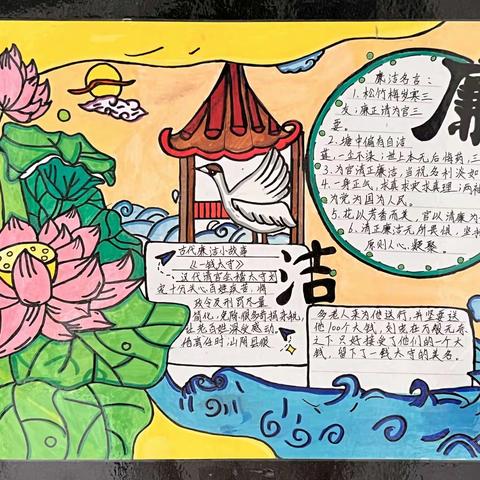 廉
廉洁名言：
1.松竹梅岁寒三
友；廉正清为官三
要。
2.塘中偏有自洁
莲，一尘不染；世上本无后悔药，三
3.为官清正廉洁，当视名利淡如
4.一身正气，求真求实求真理；两袖
为党为国为人民。
5.花以芳香而美，官以清廉为
6.清正廉洁无所畏惧，坚
原则人心凝聚。
洁
古代廉洁小故事
《一钱太守》
汉代清官会稽太守刘
宠十分关心百姓疾苦，将
政令及刑罚尽量
简化，免除很多苛捐杂税，
让老百姓深受感动。
他离任时，山阴县很
多老人来为他送行，并坚要送
他100个大钱，刘宠在万般无奈
之下只好接受了他们的一个大
钱，留下了一钱太守的美名。